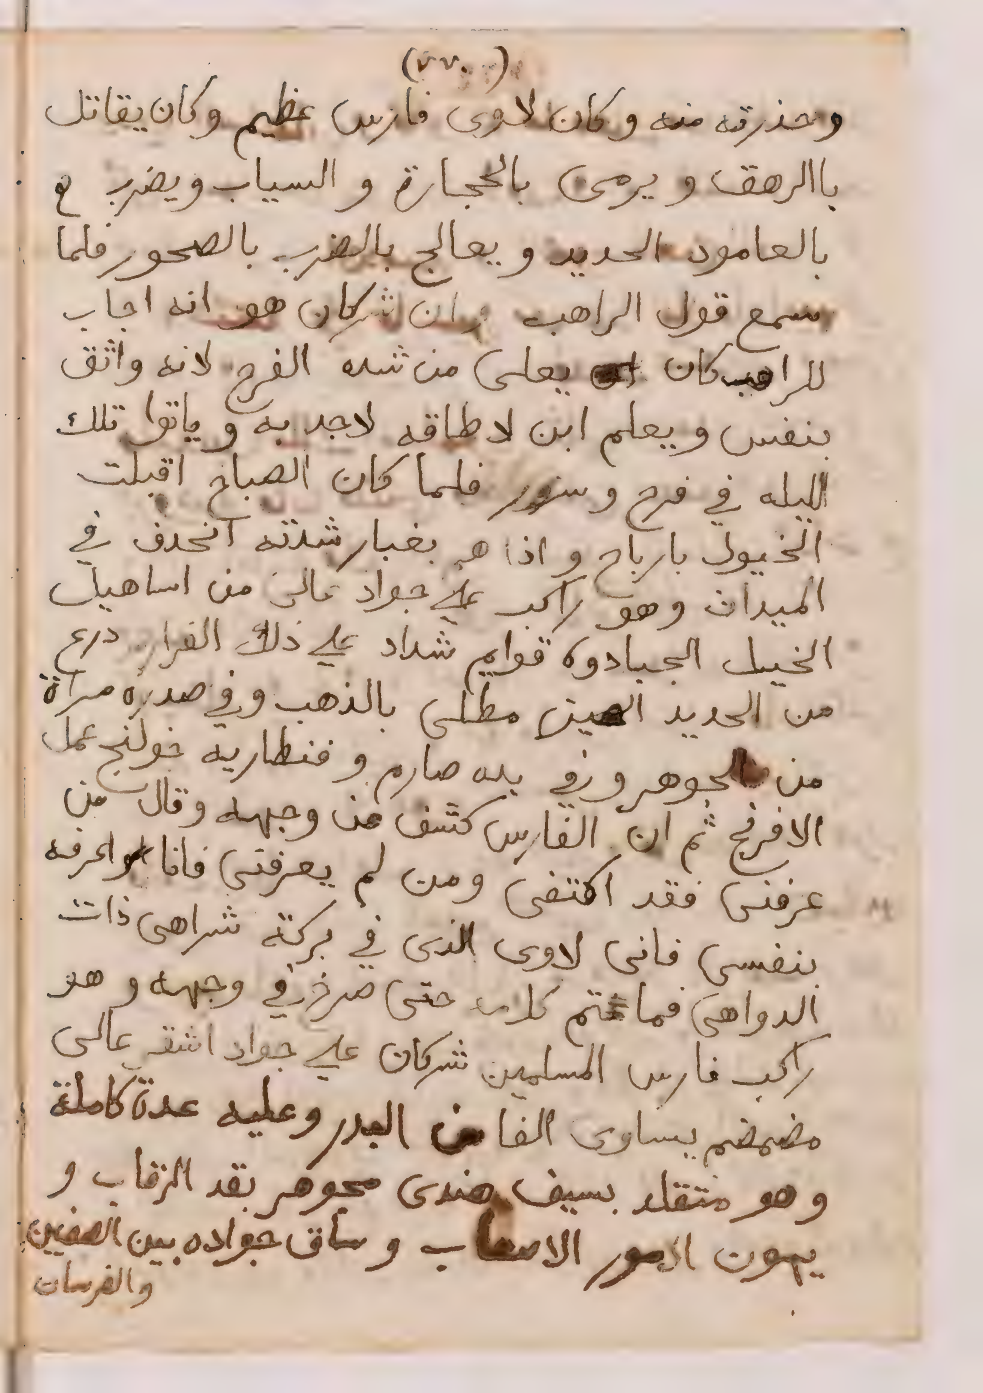 (٧٧٠)
وحذرته منه وكان لاوى فارس عظيم وكان يقاتل
باالرهق ويرمى بالحجارة و السياب ويضرب
بالعامود الحديد و يعالج بالضرب بالصحور فلما
سمع قول الراهب وان شركان هو انه اجاب
للراهب كان يعلى من شده الفرح لانه واثق
بنفس ويعلم ابن لا طاقه لاجد به و ياتوا تلك
الليله في فرح وسرور فلما كان الصباح اقبلت
الخيول بارباح و اذا هم بغبار شدته انحذف في
الميدان وهو راكب على جواد عالى من اساهيل
الخيل الجياد وه قوايم شداد على ذلك الفرار درع
من الحديد الصين مطلى بالذهب وفي صدره مرآة
من الجوهر وفي يده صارم و قنطاريه خولنج عمل
الافرنج ثم ان الفارس كشف عن وجهه وقال من
عرفنى فقد اكتفى ومن لم يعرفنى فانا اعرفه
بنفسى فانى لاوى الذى في بركة شراهى ذات
الدواهى فما تم كلامه حتى صرخ في وجهه و هو
راكب فارس المسلمين شركان على جواد اشقر عالى
مضمضم يساوى الفا من البدر وعليه عدة كاملة
وهو متقلد بسيف هندى مجوهر بقد الرقاب و
يهون الامور الاصعاب و ساق جواده بين الصفين
والفرسان